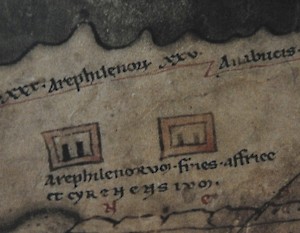 xxx. Arephilenorum xxv. Anabucis
Arephilenorum · fines · affrice
et cyrenensium.